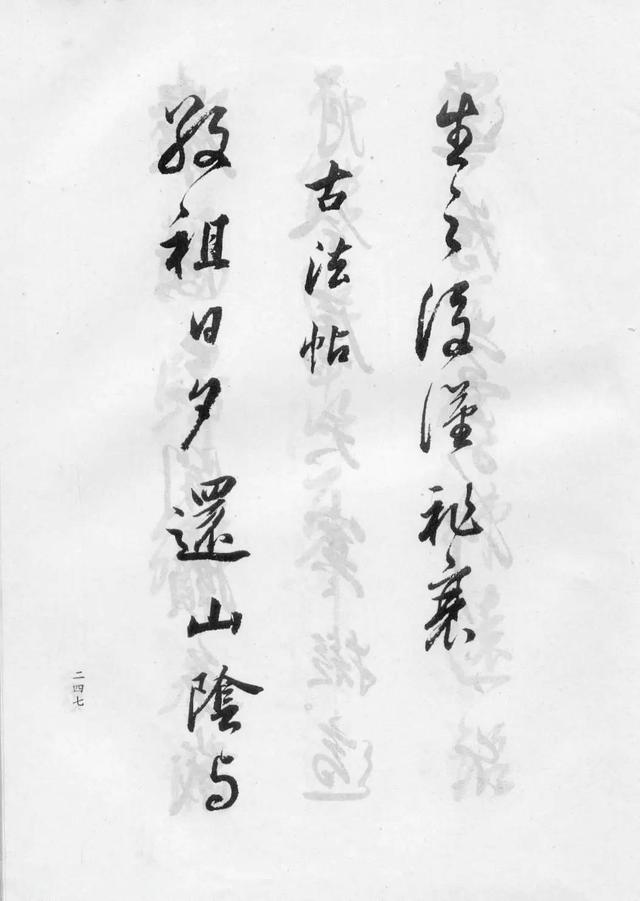 生之後
古法帖
敬祖日夕還山陰与
二四七